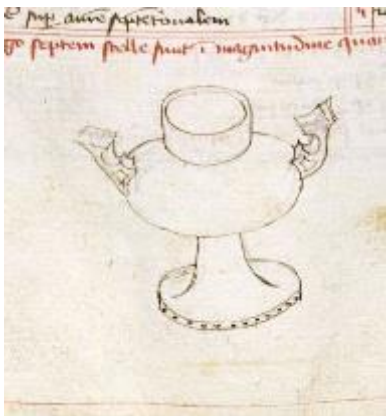 sup aurē septētrionalem
septem stelle sunt i magnitudine